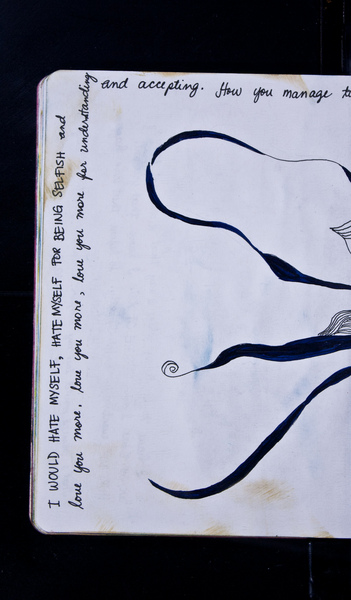 I WOULD HATE MYSELF, HATE MYSELF FOR BEING SELFISH and
love you more, love you more, love you more for understanding
and accepting. How you manage t